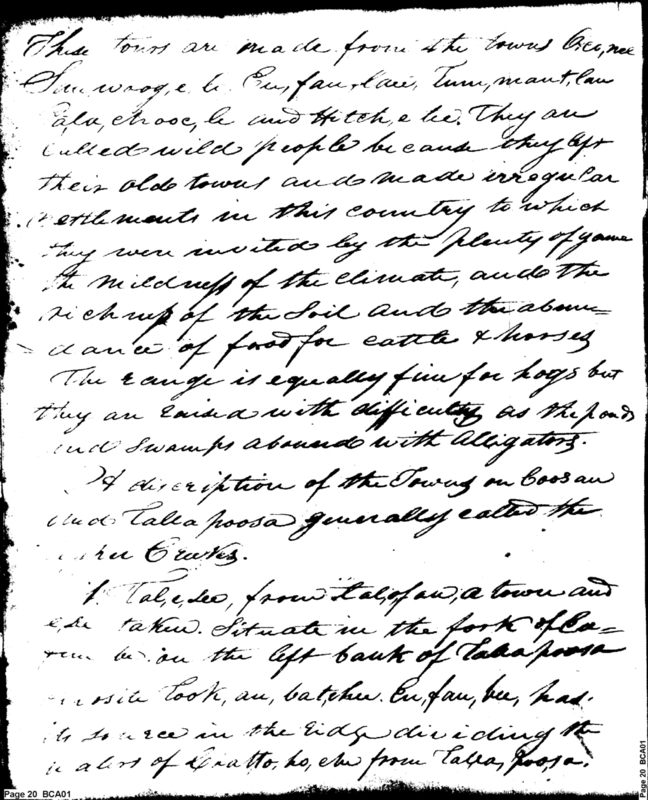 These tours are made from the towns Oco,nee
Sau,wog,e lo, Eu,fau,lau, Tum,mault,lau
Pa,la,chooc,le and Hitch,e tee. They are
called wild people because they left
their old towns and made irregular
settlements in this country to which
they were invited by the plenty of game
the mildness of the climate, and the
richness of the soil and the abun=
dance of food for cattle & horses
The range is equally fine for hogs but
they are raised with difficulty as the ponds
and swamps abound with Alligators.
A discription of the Towns on Coosau
and Tallapoosa generally called the
upper Creeks.
1. Tal,e,see, from Tal,ofau, a town and
e,se taken. Situate in the fork of Eu=
fau be on the left bank of Tallapoosa
opposite Took,au,batchee. Eu,fau,bee, has
its source in the ridge dividing the
waters of from Talla,poosa.
Page 20 BCA01
Page 20 BCA01